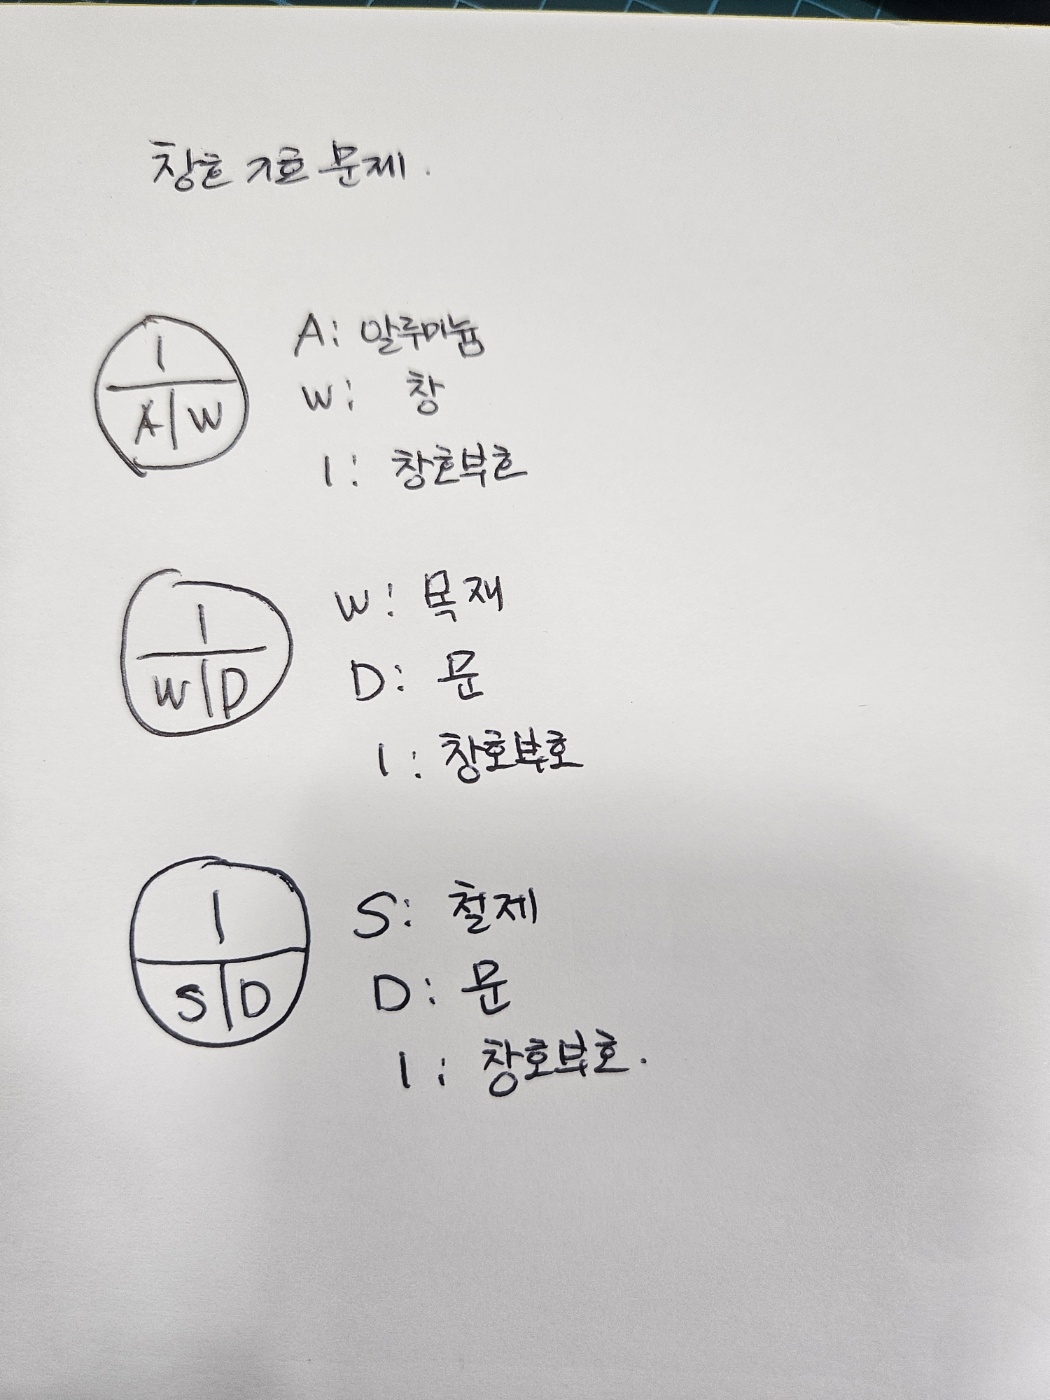 창호 기호 문제.
1
A W
A: 알루미늄
W: 창
1: 창호부호
1
W D
W: 목재
D: 문
1: 창호부호
1
S D
S: 철제
D: 문
1: 창호부호.